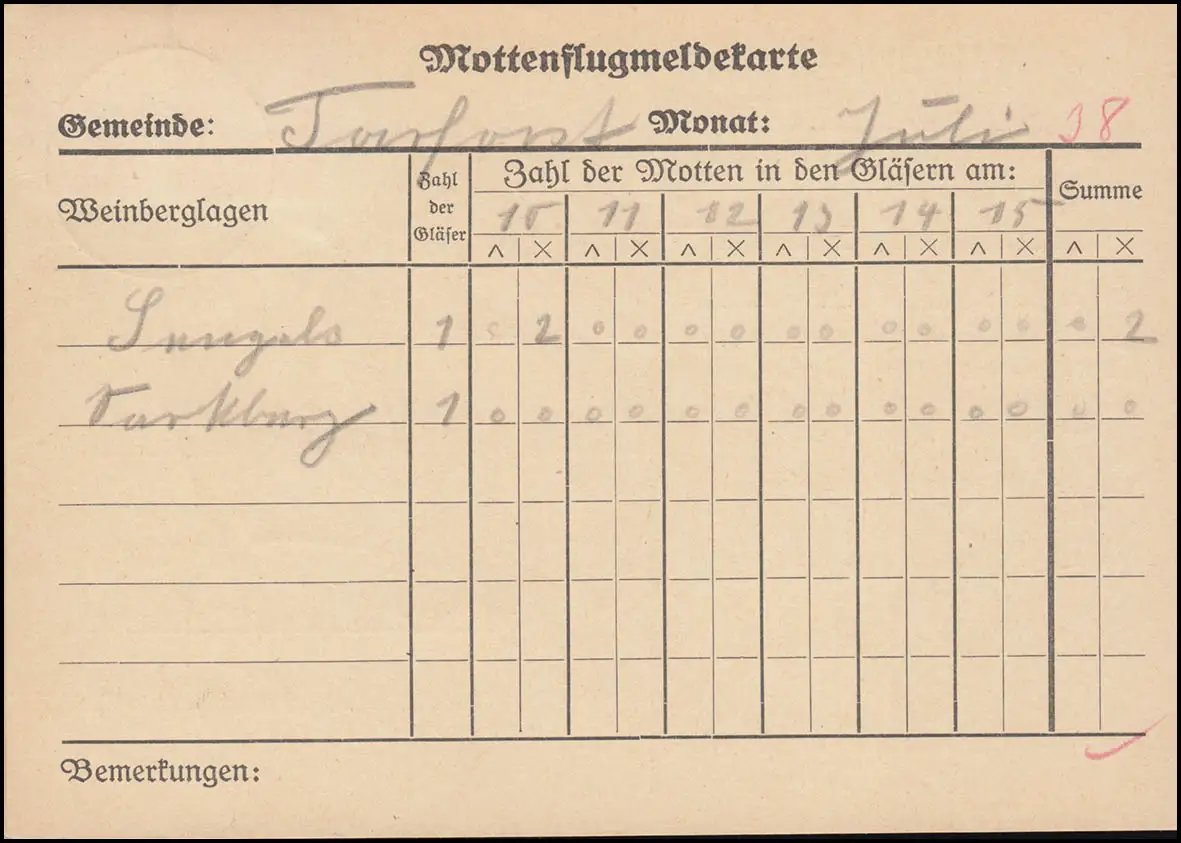 Mottenflugmeldekarte
Gemeinde: Tarforst Monat: Juli 38
Weinberglagen Zahl der Gläser Zahl der Motten in den Gläsern am: Summe
10 11 12 13 14 15
^ X ^ X ^ X ^ X ^ X ^ X ^ X
1 0 2 0 0 0 0 0 0 0 0 0 0 0 2
1 0 0 0 0 0 0 0 0 0 0 0 0 0 0
Bemerkungen: